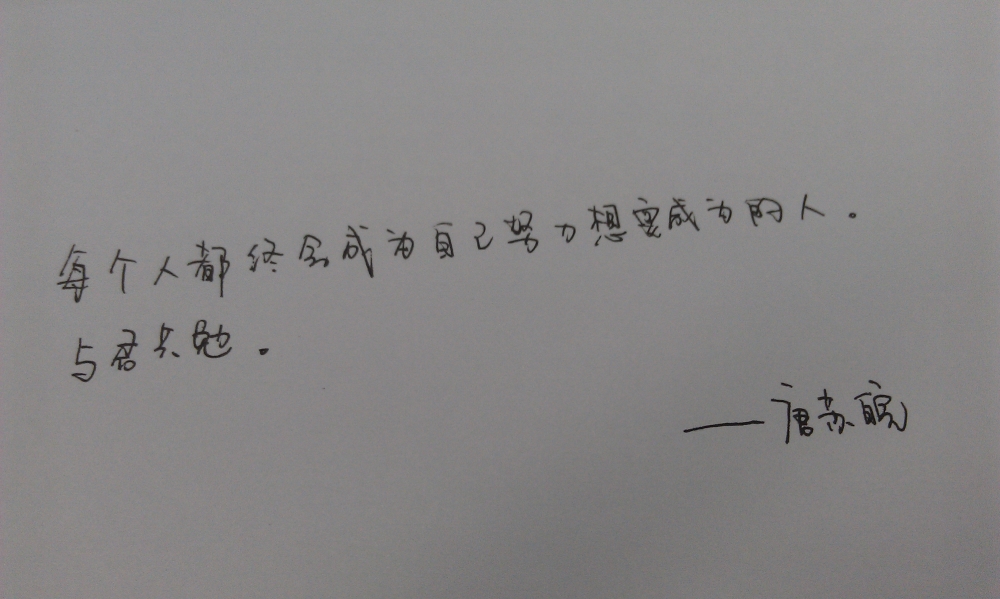 每个人都终会成为自己努力想要成为的人。
与君共勉。
——唐苏皖